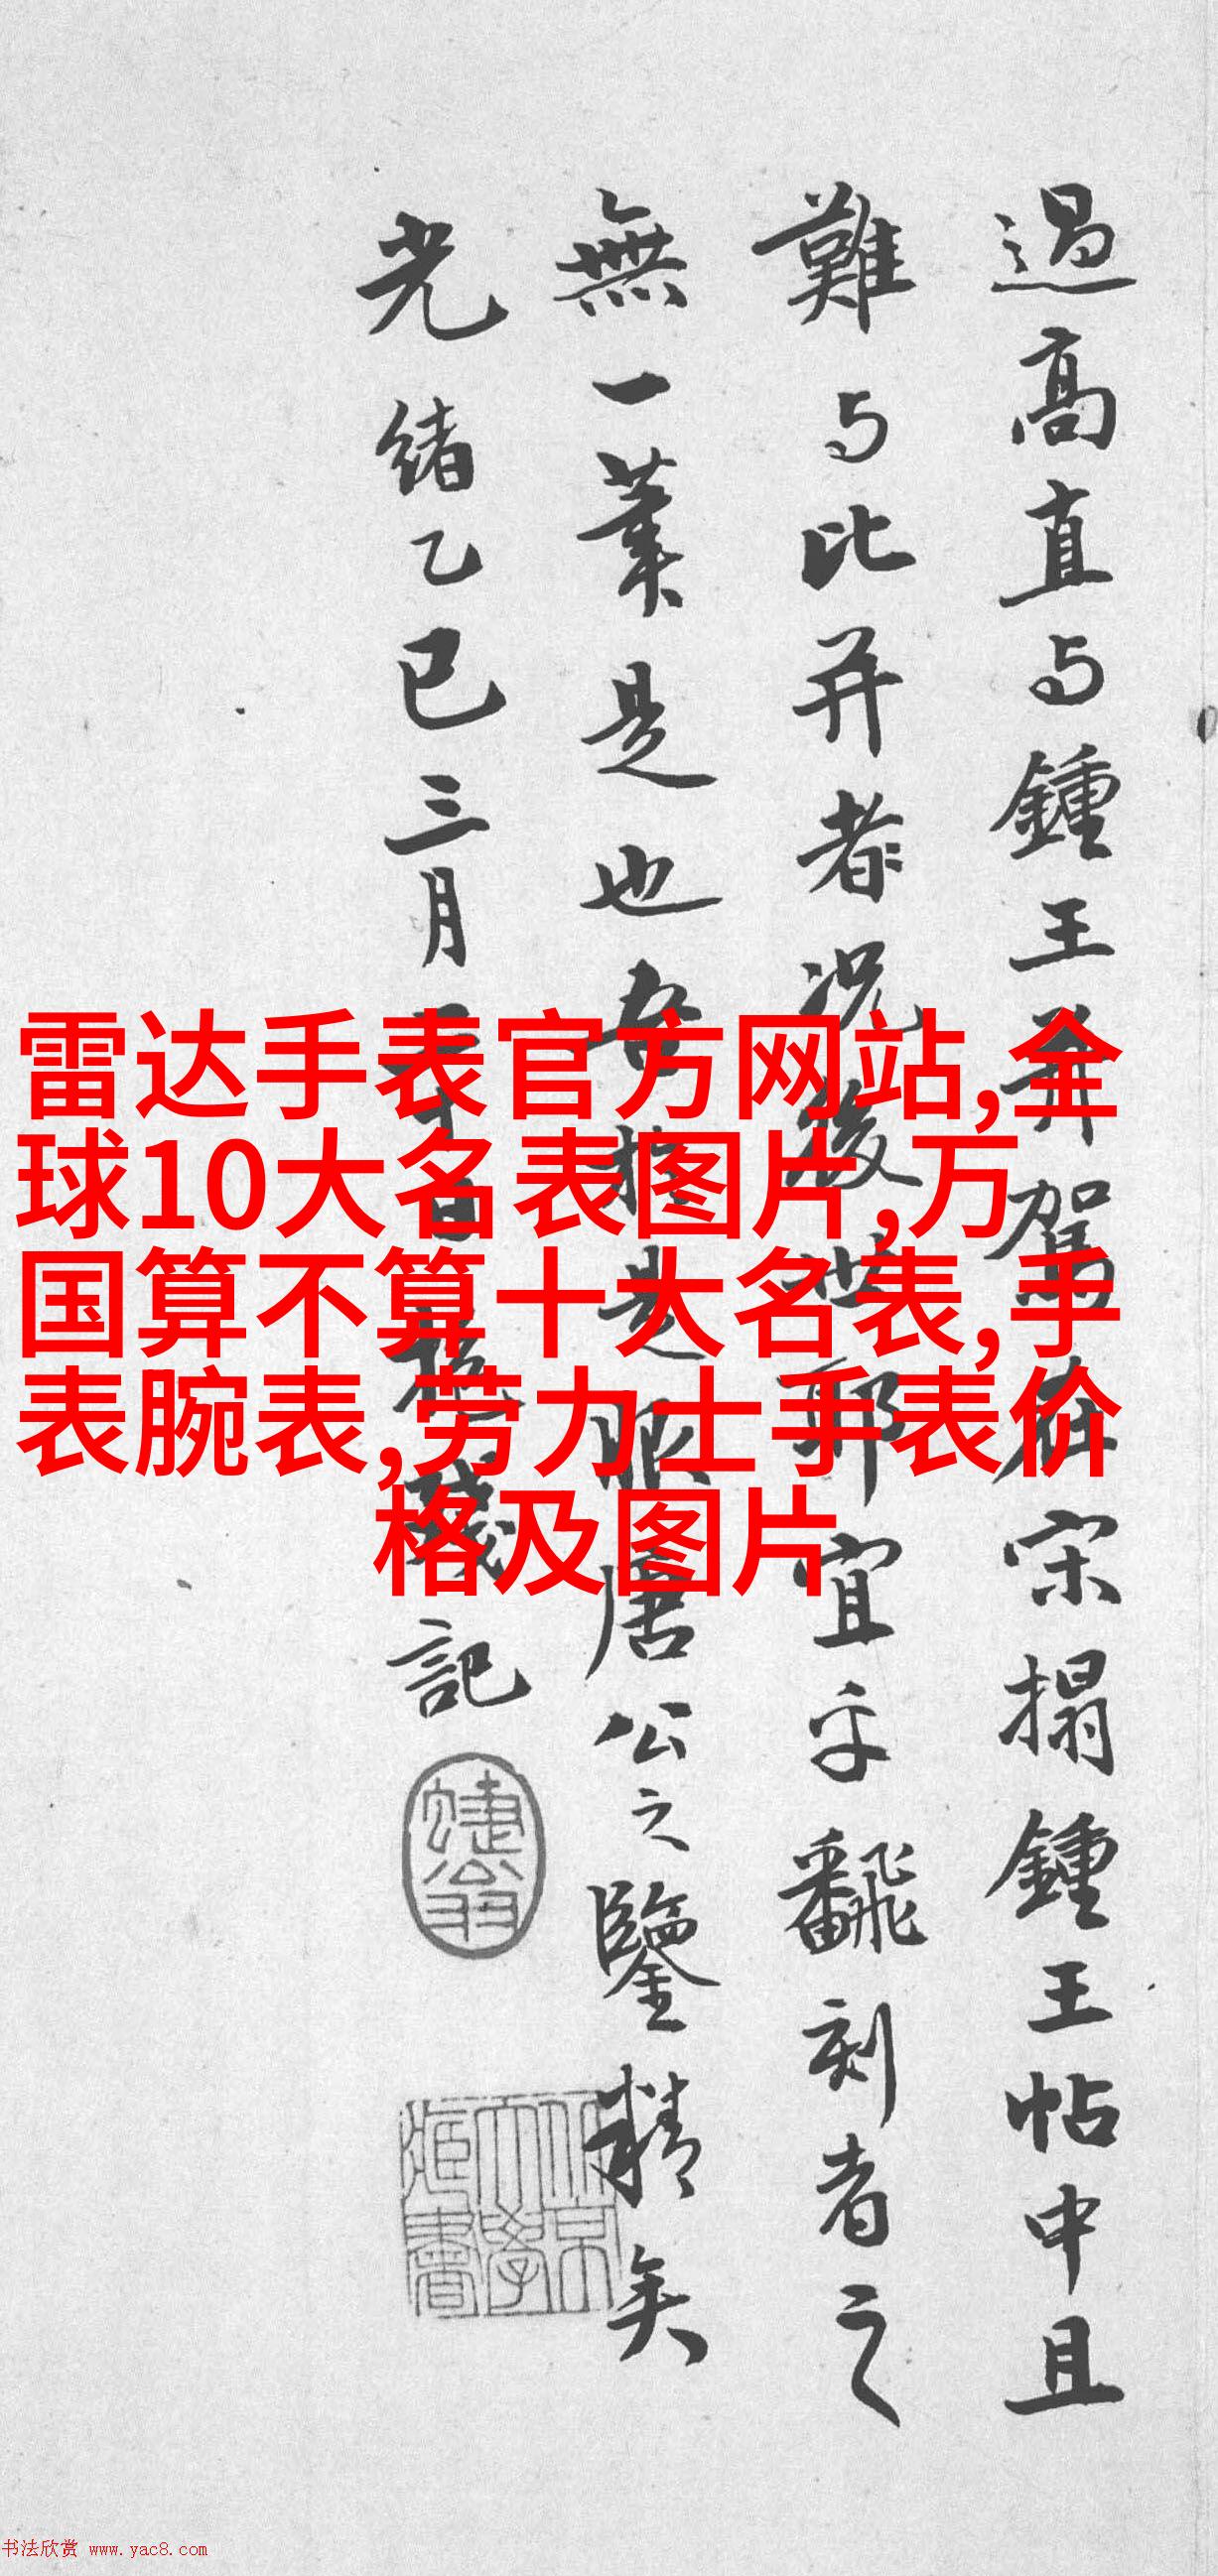 過高直与鍾王並駕在宋搨鍾王帖中且
難与比并者況後世耶宜乎飜刻者之
無一業是也吾於是服唐公之鑒精矣
光緒乙巳三月
記
雷达手表官方网站,全
球10大名表图片,万
国算不算十大名表,手
表腕表,劳力士手表价
格及图片
书法欣赏 www.yac8.com